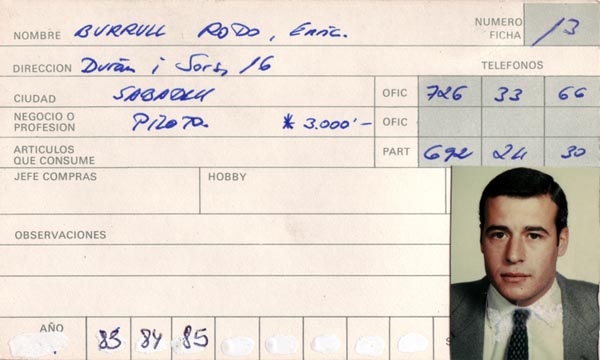 NOMBRE BURRULL RODO, Enric. NUMERO FICHA 13
DIRECCION Durán i Sors, 16 TELEFONOS
CIUDAD SABADELL OFIC 726 33 66
NEGOCIO O PROFESION PILOTO. * 3.000'- OFIC
ARTICULOS QUE CONSUME PART 692 24 30
JEFE COMPRAS HOBBY
OBSERVACIONES
AÑO 83 84 85